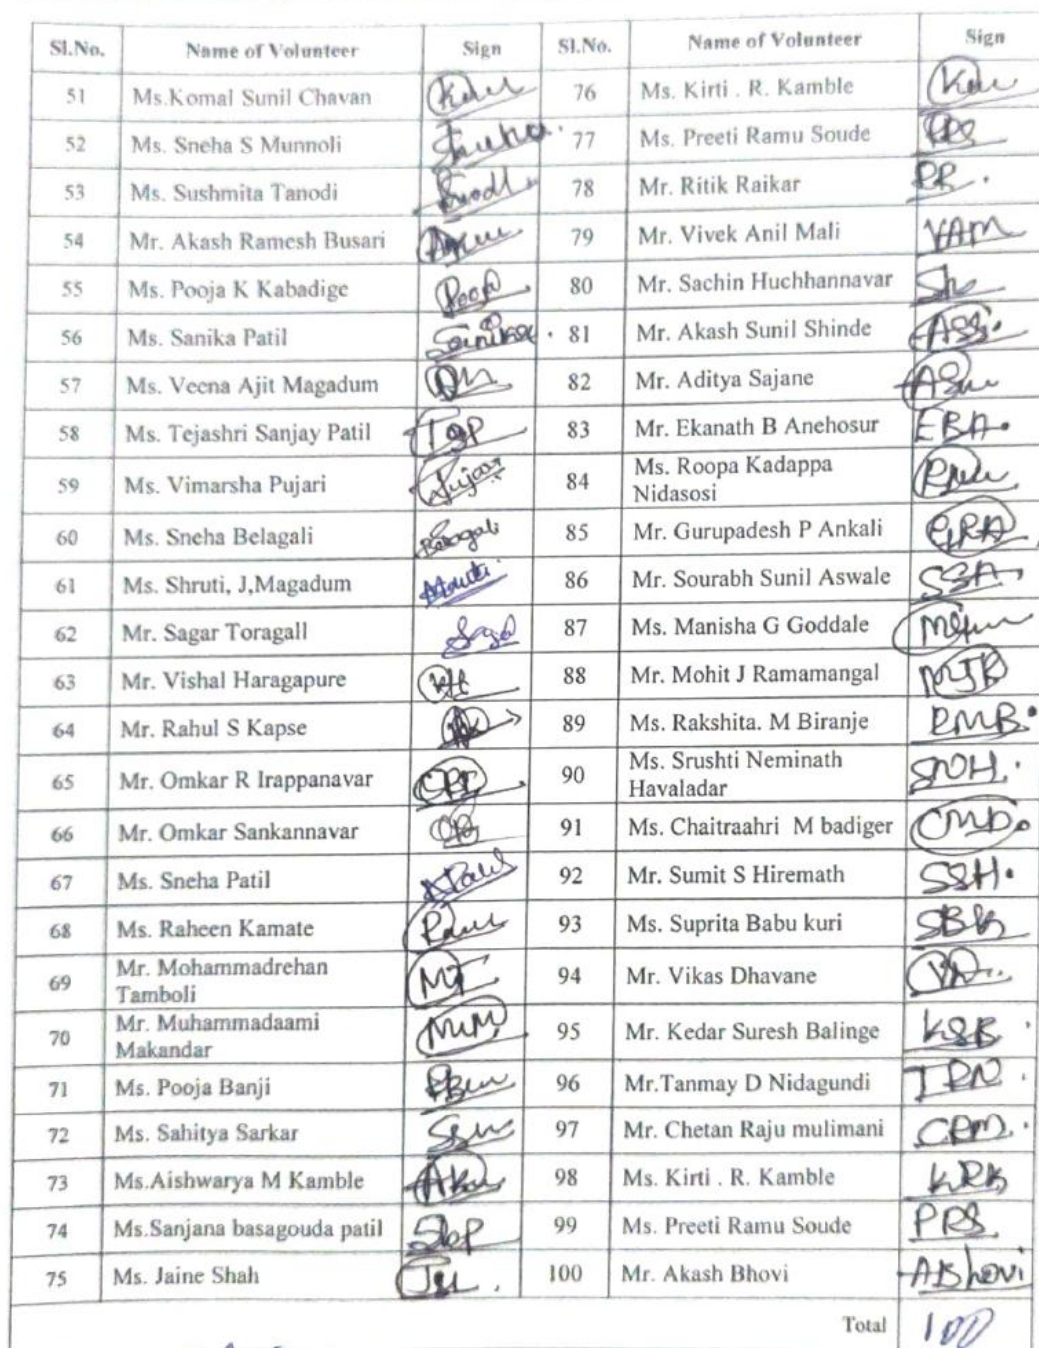 Sl.No. Name of Volunteer Sign Sl.No. Name of Volunteer Sign
51 Ms.Komal Sunil Chavan 76 Ms. Kirti . R. Kamble
52 Ms. Sneha S Munnoli Sneha. 77 Ms. Preeti Ramu Soude PRS
53 Ms. Sushmita Tanodi 78 Mr. Ritik Raikar RR.
54 Mr. Akash Ramesh Busari 79 Mr. Vivek Anil Mali VAM
55 Ms. Pooja K Kabadige Pooja 80 Mr. Sachin Huchhannavar
56 Ms. Sanika Patil Sanika. 81 Mr. Akash Sunil Shinde ASS.
57 Ms. Veena Ajit Magadum 82 Mr. Aditya Sajane
58 Ms. Tejashri Sanjay Patil TSP 83 Mr. Ekanath B Anehosur EBA.
59 Ms. Vimarsha Pujari 84 Ms. Roopa Kadappa
Nidasosi
60 Ms. Sneha Belagali Belagali 85 Mr. Gurupadesh P Ankali
61 Ms. Shruti, J,Magadum 86 Mr. Sourabh Sunil Aswale SSA
62 Mr. Sagar Toragall Sagar 87 Ms. Manisha G Goddale
63 Mr. Vishal Haragapure VH 88 Mr. Mohit J Ramamangal MJR
64 Mr. Rahul S Kapse 89 Ms. Rakshita. M Biranje RMB.
65 Mr. Omkar R Irappanavar 90 Ms. Srushti Neminath
Havaladar SNH.
66 Mr. Omkar Sankannavar 91 Ms. Chaitraahri M badiger CMB.
67 Ms. Sneha Patil 92 Mr. Sumit S Hiremath SSH.
68 Ms. Raheen Kamate 93 Ms. Suprita Babu kuri SBK
69 Mr. Mohammadrehan
Tamboli MT 94 Mr. Vikas Dhavane
70 Mr. Muhammadaami
Makandar MM 95 Mr. Kedar Suresh Balinge KSB.
71 Ms. Pooja Banji 96 Mr.Tanmay D Nidagundi
72 Ms. Sahitya Sarkar 97 Mr. Chetan Raju mulimani CRM.
73 Ms.Aishwarya M Kamble 98 Ms. Kirti . R. Kamble KRK
74 Ms.Sanjana basagouda patil SbP 99 Ms. Preeti Ramu Soude PRS
75 Ms. Jaine Shah 100 Mr. Akash Bhovi ABhovi
Total 100